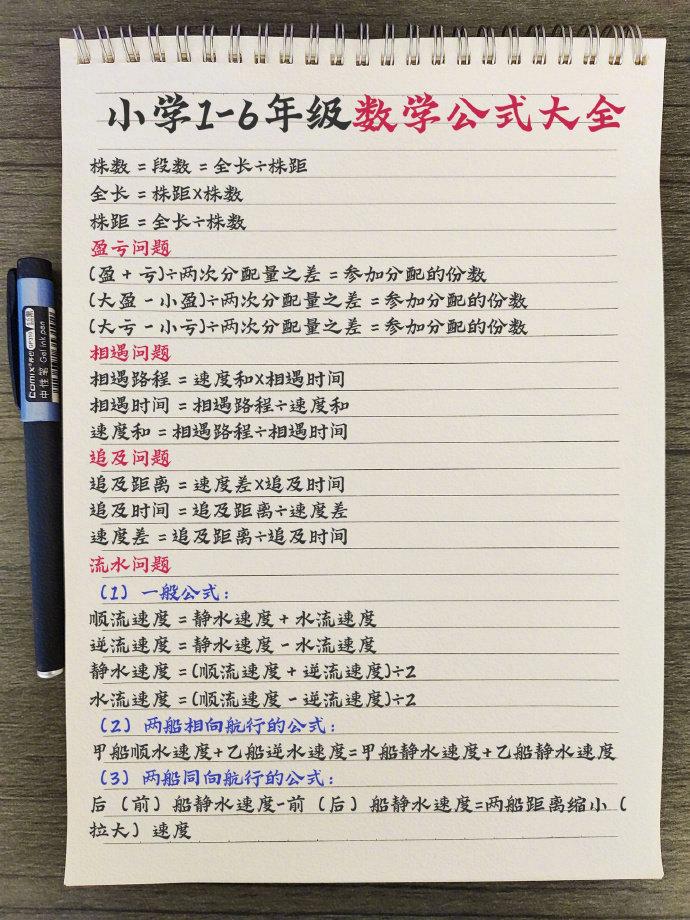 小学1-6年级数学公式大全
株数 = 段数 = 全长÷株距
全长 = 株距×株数
株距 = 全长÷株数
盈亏问题
(盈 + 亏)÷两次分配量之差 = 参加分配的份数
(大盈 - 小盈)÷两次分配量之差 = 参加分配的份数
(大亏 - 小亏)÷两次分配量之差 = 参加分配的份数
相遇问题
相遇路程 = 速度和×相遇时间
相遇时间 = 相遇路程÷速度和
速度和 = 相遇路程÷相遇时间
追及问题
追及距离 = 速度差×追及时间
追及时间 = 追及距离÷速度差
速度差 = 追及距离÷追及时间
流水问题
（1）一般公式：
顺流速度 = 静水速度 + 水流速度
逆流速度 = 静水速度 - 水流速度
静水速度 = (顺流速度 + 逆流速度)÷2
水流速度 = (顺流速度 - 逆流速度)÷2
（2）两船相向航行的公式：
甲船顺水速度+乙船逆水速度=甲船静水速度+乙船静水速度
（3）两船同向航行的公式：
后（前）船静水速度-前（后）船静水速度=两船距离缩小（
拉大）速度
comix
中性笔 Gel ink pen